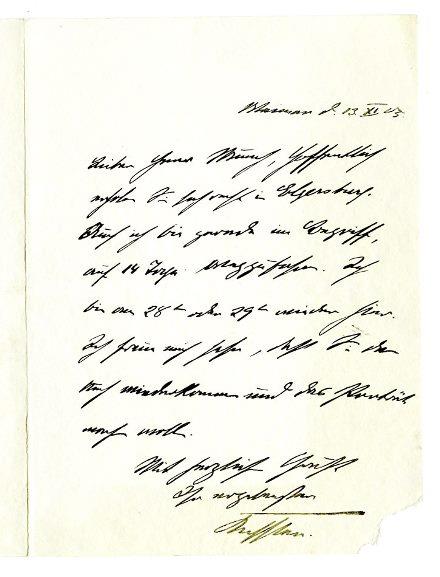 Weimar d. 13. XI. 05.
Lieber Herr Munch, Hoffentlich
erholen Sie sich recht in Elgersburg.
Auch ich bin gerade im Begriff,
auf 14 Tage wegzufahren. Ich
bin am 28t oder 29t wieder hier.
Ich freue mich sehr, daß Sie dann
auch wiederkommen und das Porträt
machen wollen.
Mit herzlichem Gruß
Ihr ergebenster